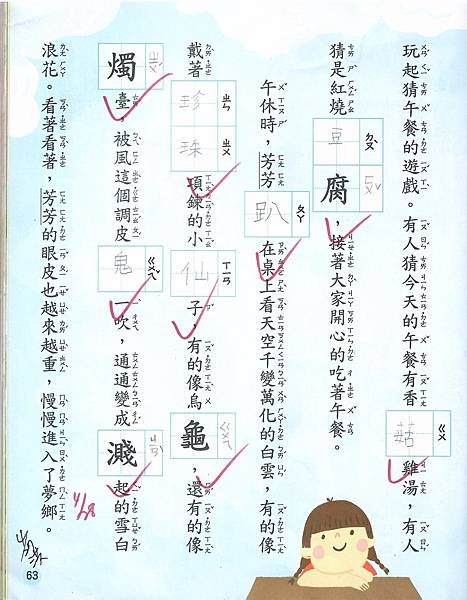 玩起猜午餐的遊戲。有人猜今天的午餐有香菇雞湯，有人
猜是紅燒豆腐，接著大家開心的吃著午餐。
午休時，芳芳趴在桌上看天空千變萬化的白雲，有的像
戴著珍珠項鍊的小仙子，有的像烏龜，還有的像
燭臺，被風這個調皮鬼一吹，通通變成濺起的雪白
浪花。看著看著，芳芳的眼皮也越來越重，慢慢進入了夢鄉。
4/28
63